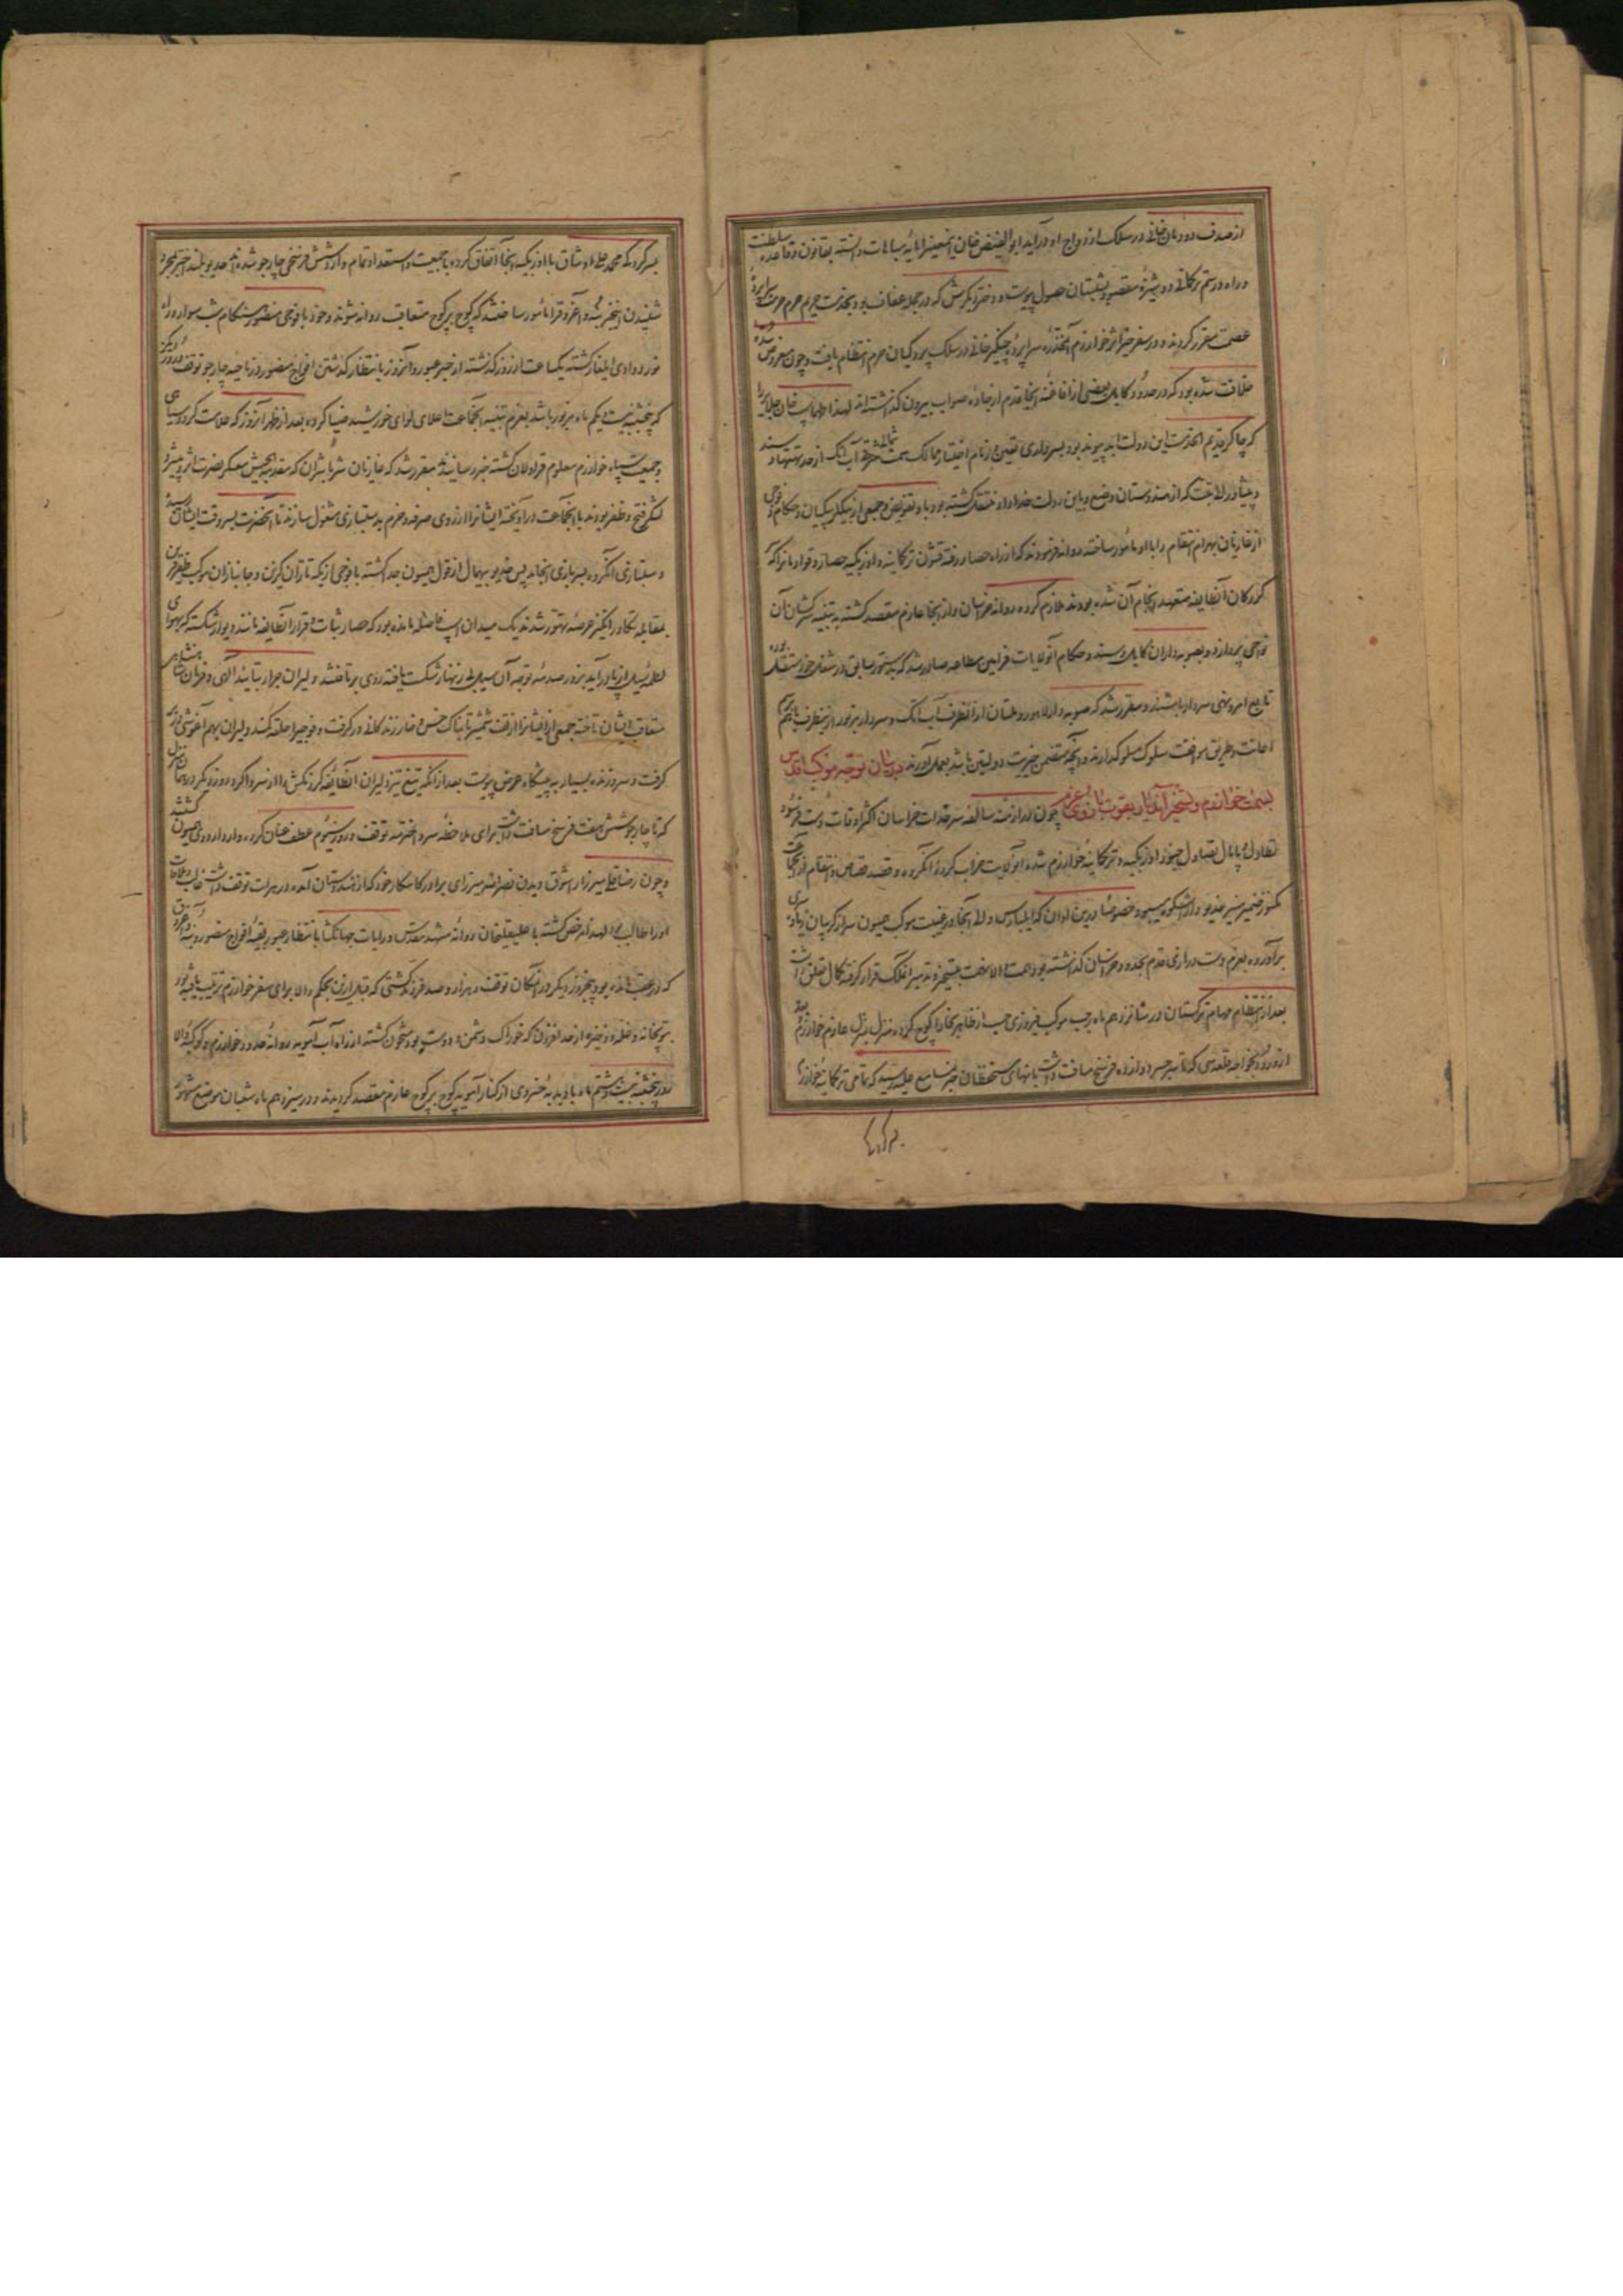 از صدف دودمان خانی در سلک ازدواج او درآید ابوالفیض خان این معنی را مایه مباهات دانسته بقانون و قاعده سلطنت
و راه و رسم ترکانی دوشیزه مقصود بشبستان حصول پیوست و دختر دیگرش که در حجله عفاف بود بخدمت حریم حرم حرمت
عصمت مقرر گردید و در سفر خوارزم سراپرده چنگیز خانی در سلک پردگیان حرم انتظام یافت و چون معروض
خلافت شده بود که در حدود کابل بعضی از افاغنه آنجا قدم از جاده صواب بیرون گذاشته اند لهذا طهماسب خان جلایر را
که چاکر قدیم الخدمت این دولت ابد پیوند بود بسرداری تعیین و زمام اختیار ممالک سمت شمالی شرقی آب اتک از حد تبت و سند
و پیشاور الی تبت که از هندوستان وضع و باین دولت خداداد منتقل گشته بود باو تفویض و جمعی از بیگلربیگیان و حکام و فوجی
از غازیان بهرام انتقام را با او مأمور ساخته روانه فرمودند که از راه حصار رفته قشون ترکمانیه و اوزبکیه حصار و قوادیانرا که
کدکان آنطایفه متعهد انجام آن شده بودند ملازم کرده روانه خراسان و از آنجا عازم مقصد گشته به تنبیه سرکشان آن
نواحی پردازد و بصوبه داران کابل و سند و حکام آنولایات فرامین مطاعه صادر شد که بدستور سابق در شغل خود مستقل بوده
تابع امر و نهی سردار باشند و مقرر شد که صوبه دار لاهور و ملتان از آنطرف آب اتک و سردار مزبور از اینطرف باهم
اعانت و طریق موافقت سلوک مسلوک دارند و آنچه متضمن خیریت دولتین باشد بعمل آورند در بیان توجه موکب اقدس
بسمت خوارزم و تسخیر آن دیار بقوت بازوی عزم چون در ازمنه سالفه سرحدات خراسان اکثر اوقات دست فرسود
تطاول و پایمال تعدی اوزبکیه و ترکمانیه خوارزم شده آنولایت خراب کرده آنگروه و قصد قصاص و انتقام از آنجماعت
مکنوز ضمیر منیر خدیو دارا شکوه میبود خصوصا درین اوان که ایلبارس والی آنجا در غیبت موکب همیون سر از گریبان زیاده سری
برآورده بعزم دست درازی قدم بحدود خراسان گذاشته بود همت والا نهمت بتسخیر قرار گرفته کمال تعلق داشت
بعد از انتظام مهام ترکستان در شانزدهم ماه رجب موکب فیروزی از ظاهر بخارا کوچ کرده منزل بمنزل عازم خوارزم
از ورود بخواجه قلعه سی که تا سر جسر دوازده فرسخ مسافت داشت بانهای مستحفظان جسر بمسامع علیه رسید که تمامی ترکمانیه خوارزم
بسرکردگی محمد علی اوشاق با اوزبکیه آنجا اتفاق کرده با جمعیت و استعداد تمام وارد شش فرسخی چارجو شده اند خدیو بلند اختر بمجرد
شنیدن اینخبر بنه و آغروق را مأمور ساختند که کوچ بر کوچ متعاقب روانه شوند و خود با فوجی منصور هنگام شب سوار و راه
نورد وادی ایلغار گشته یکساعت از روز گذشته از جسر عبور و آنروز بانتظار گذشتن افواج منصور در ناحیه چارجو توقف و روز دیگر
که پنجشنبه بیست و یکم ماه مزبور باشد بعزم تنبیه آنجماعت اعلای لوای خورشید ضیا کرده بعد از ظهر آنروز که علامت گرد و سیاهی
و جمعیت سپاه خوارزم معلوم قراولان گشته خبر رسانیدند مقرر شد که غازیان که مقدمة الجیش معسکر نصرت اثر و پیشرو
لشکر فتح و ظفر بودند با آنجماعت درآویخته ایشانرا از روی صرفه و حزم بدستبازی مشغول سازند تا آنحضرت بسروقت ایشان رسیده
و سلتازی آنگروه بسربازی انجامد پس خدیو بیهمال از قول همیون جدا گشته با فوجی از یکه تازان گزین و جانبازان موکب ظفرقرین
بمقابله تکاور انگیز عرصه تهور شدند یک میدان اسب فاصله مانده بود که حصار ثبات و قرار آنطایفه مانند دیوار شکسته که بهوای
لطمه سیل از پا درآید بزور صدمه توجه آن سیل بی زنهار شکست یافته روی برتافتند و لیران جرار بتأیید الهی و فرمان شاهنشاهی
متعاقب ایشان تاخته جمعی از ایشانرا از تف شمشیر تابناک خس و خار زندگانی درگرفت و فوجی را حلقه کمند دلیران بهم آغوشی در
گرفت و سر و زنده بسیار به پیشگاه عرض پیوست بعد از انگیز تیغ تیز دلیران آنطایفه گردنکش را از سر وا کرد روز دیگر در همان منزل
که تا چارجو شش هفت فرسخ مسافت داشت برای ملاحظه سر و اخترمه توقف و روز سیم عطف عنان کرده وارد اردوی همیون گشتند
و چون رضاقلی میرزا را شوق دیدن نصرالله میرزای برادر کامکار خود که از هندوستان آمده در هرات توقف داشت غالب و ملاقات
او را طالب بود لهذا مرخص گشته با علیقلیخان روانه مشهد مقدس و رایات جهانگشا بانتظار عبور بقیه افواج منصور و بنه و آغروق
که در عقب مانده بود پنجروز دیگر در آنمکان توقف و هزار و صد فروند کشتی که قبل از این بحکم والا برای سفر خوارزم ترتیب یافته بود
بتوپخانه و غله و ذخیره از حد افزون که خوراک دشمن و دوست بود مشحون گشته از راه آب آمویه روانه حدود خوارزم و کوکبه والا
روز پنجشنبه بیست و هشتم ماه با دبدبه خسروی از کنار آمویه کوچ بر کوچ عازم مقصد گردیدند و در سیزدهم ماه شعبان موضع مشهور